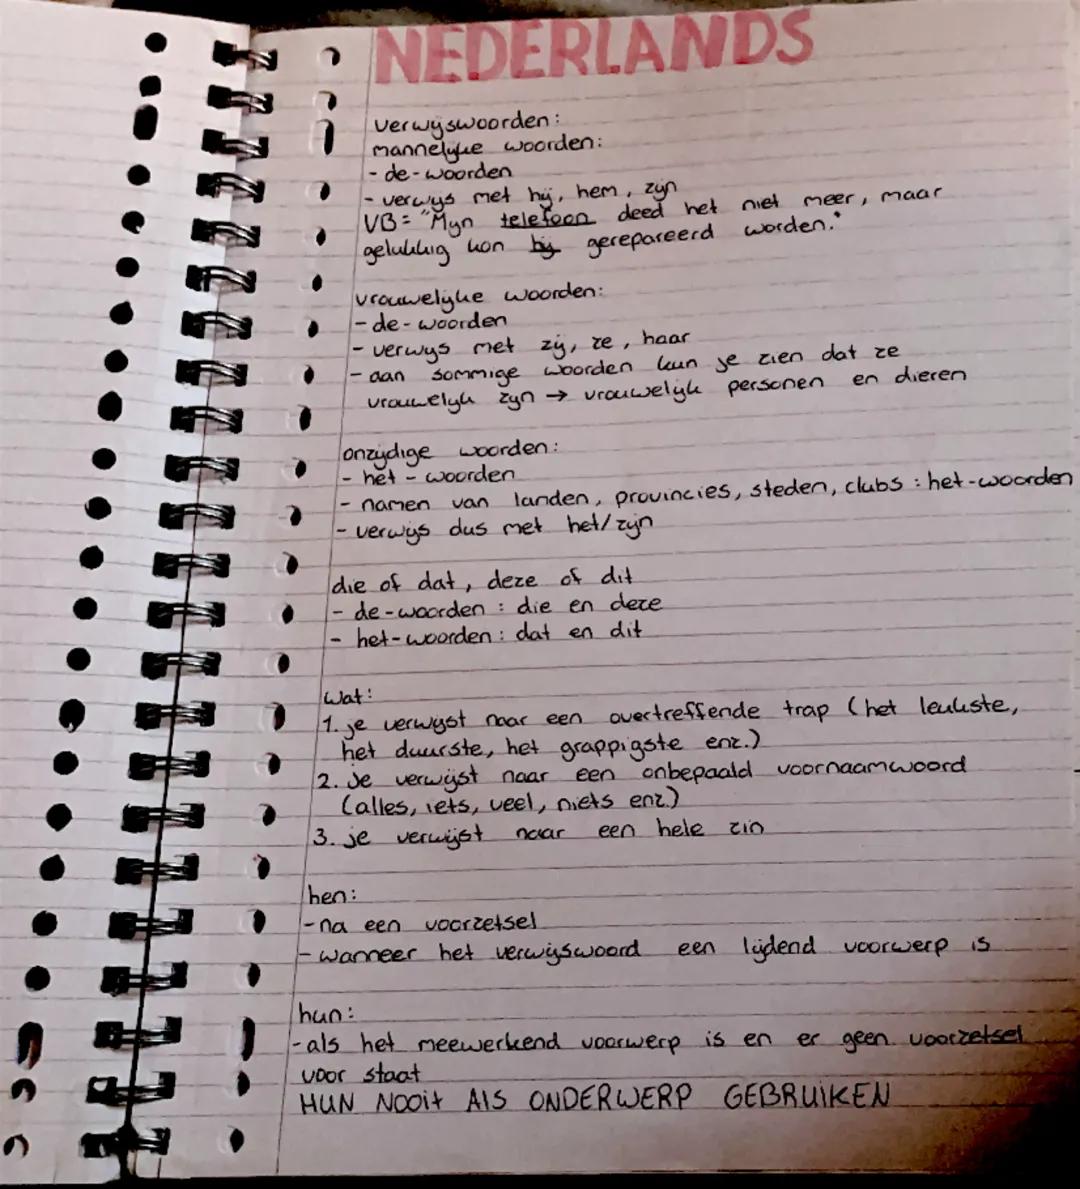 NEDERLANDS
verwijswoorden:
mannelijke woorden:
- de-woorden
- verwijs met hij, hem, zijn
VB= "Mijn telefoon deed het niet meer, maar
gelukkig kon hij gerepareerd worden."
vrouwelijke woorden:
- de-woorden
- verwijs met zij, ze, haar
- aan sommige woorden kun je zien dat ze
vrouwelijk zijn → vrouwelijk personen en dieren
onzijdige woorden:
- het-woorden
- namen van landen, provincies, steden, clubs: het-woorden
- verwijs dus met het/zijn
die of dat, deze of dit
- de-woorden: die en deze
- het-woorden: dat en dit
wat:
1. je verwijst naar een overtreffende trap (het leukste,
het duurste, het grappigste enz.)
2. Je verwijst naar een onbepaald voornaamwoord
(alles, iets, veel, niets enz.)
3. je verwijst naar een hele zin
hen:
- na een voorzetsel
- wanneer het verwijswoord een lijdend voorwerp is
hun:
- als het meewerkend voorwerp is en er geen voorzetsel
voor staat
HUN NOOIT ALS ONDERWERP GEBRUIKEN